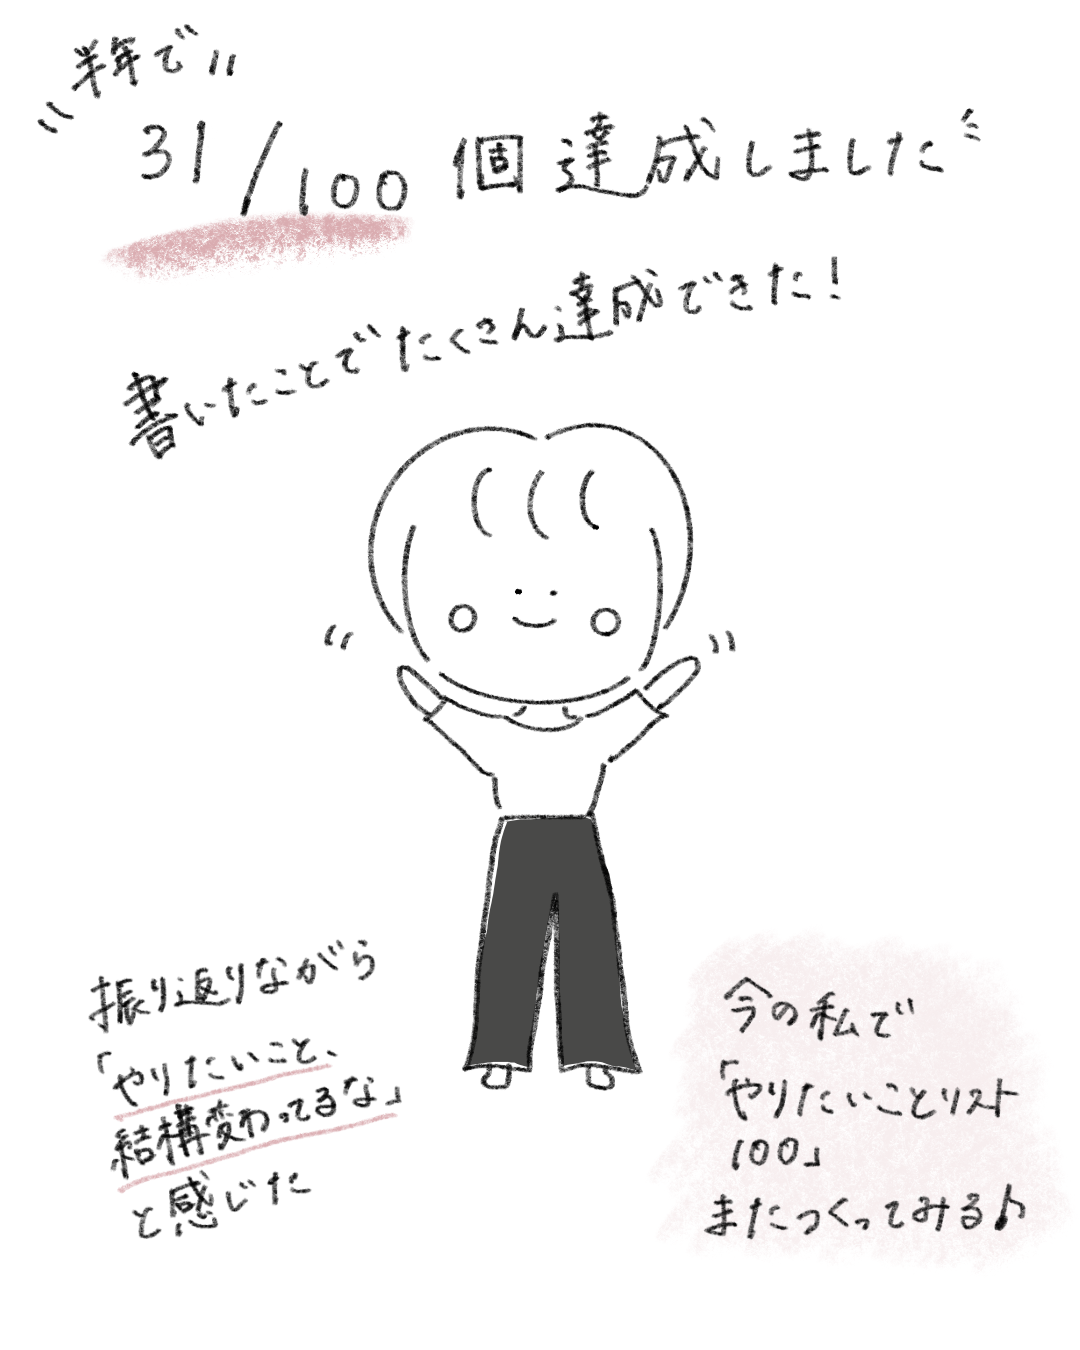 半年で
31/100個達成しました
書いたことでたくさん達成できた!
振り返りながら
「やりたいこと、
結構変わってるな」
と感じた
今の私で
「やりたいことリスト
100」
またつくってみる♪